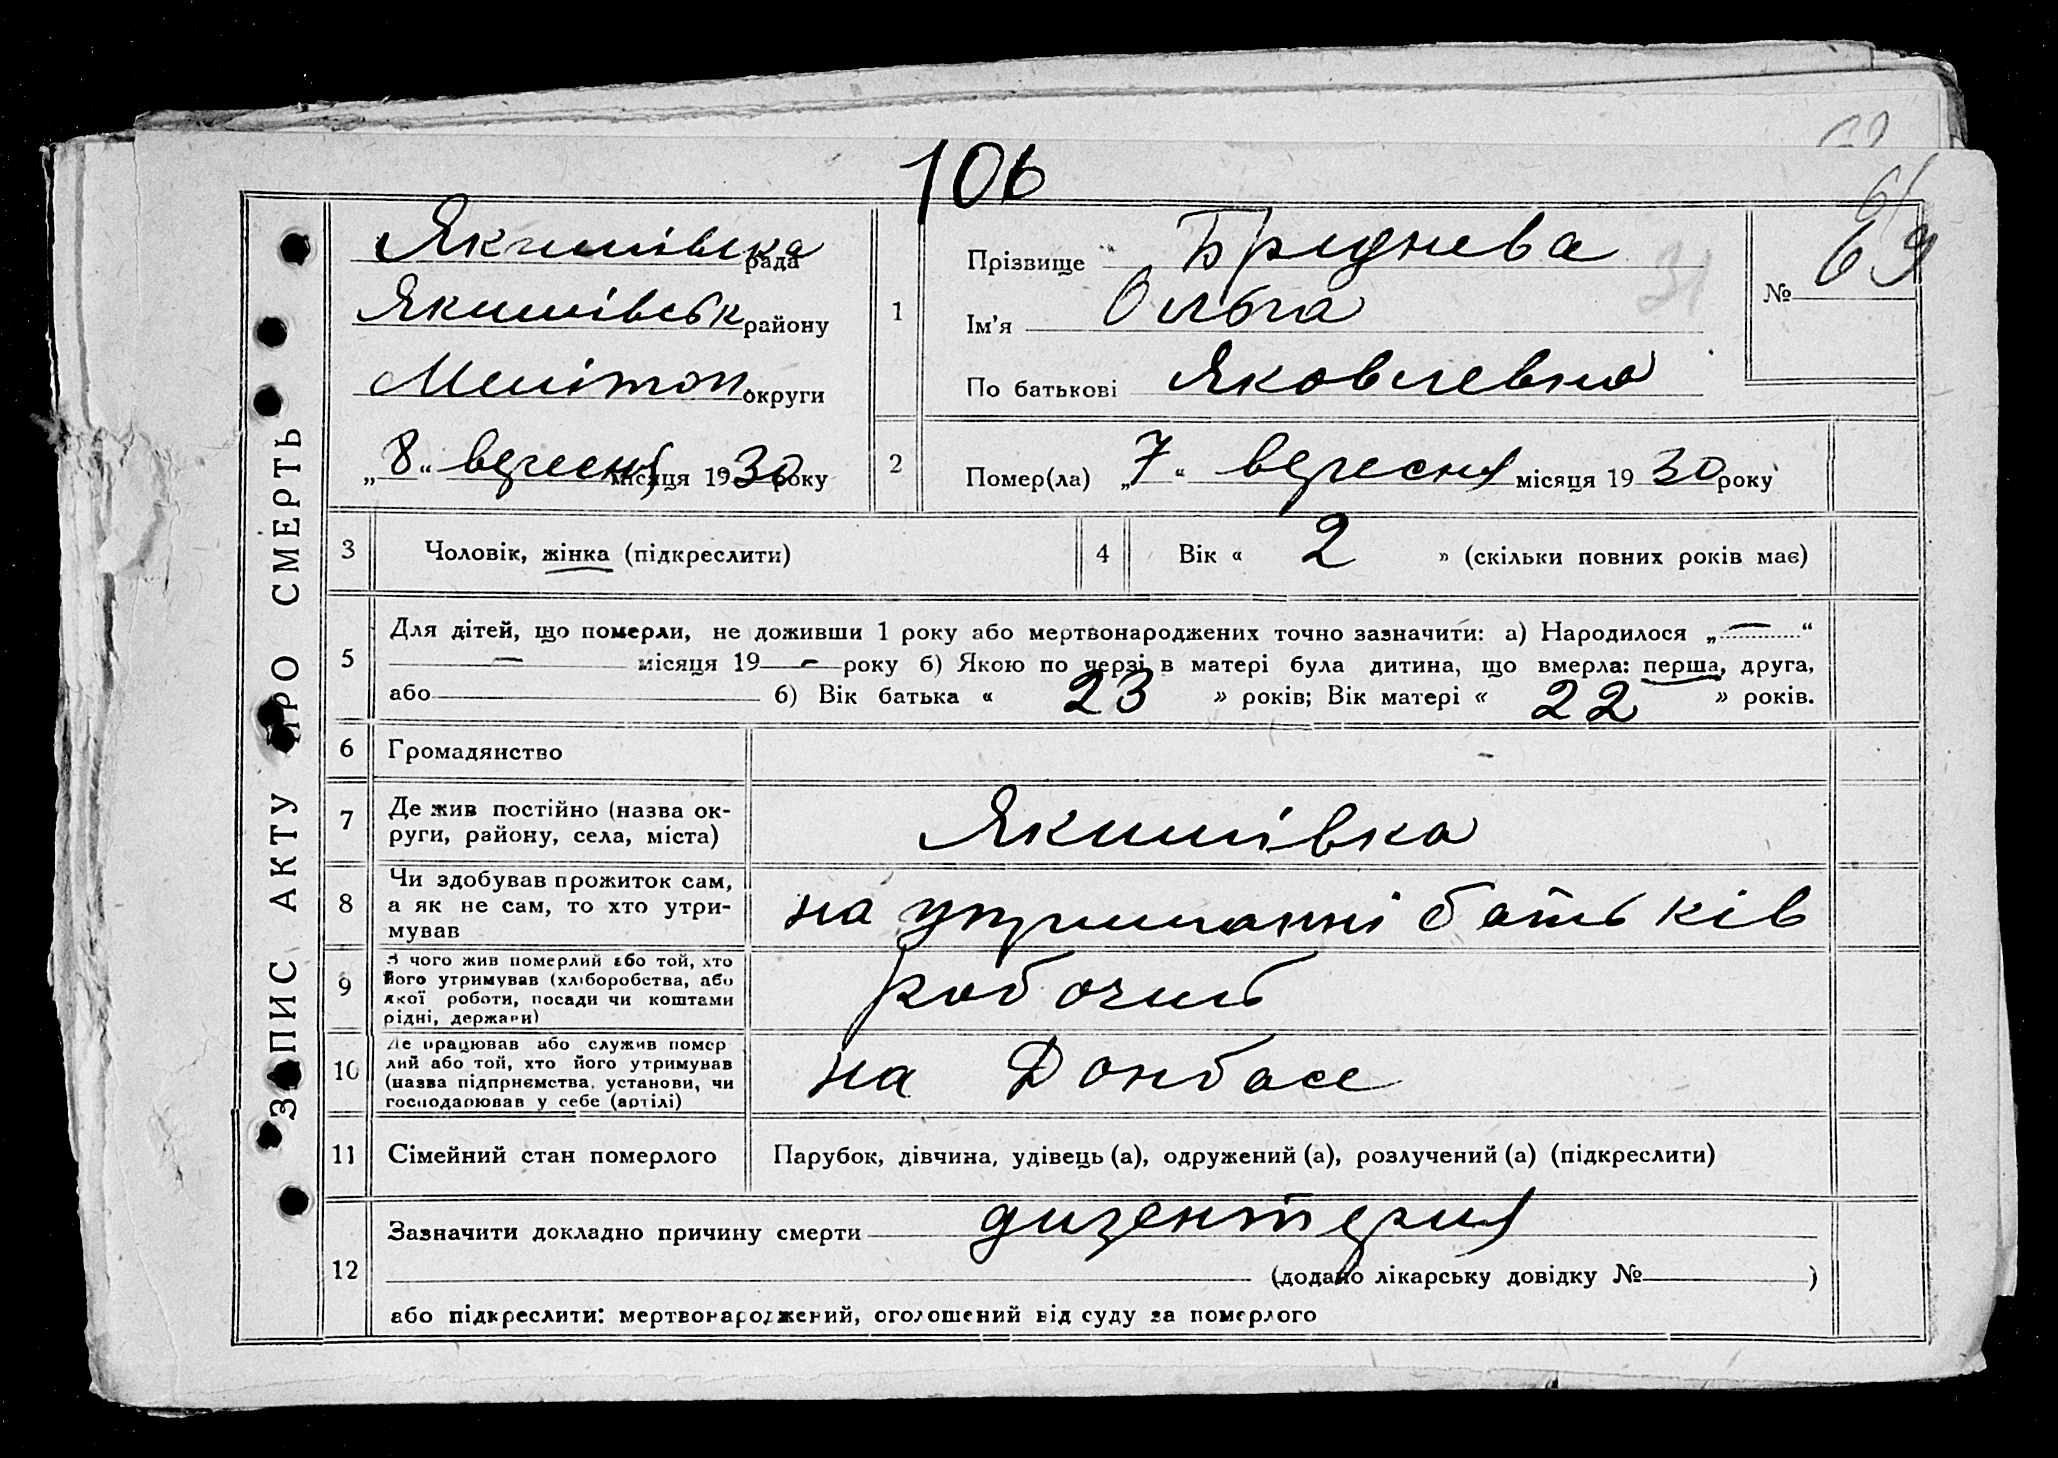 106
61
69
Якимівська рада
Якимівськ району
Мелітоп округи
„8“ вересня місяця 1930 року
1
Прізвище Бриднева
31
Ім’я Ольга
По батькові Яковлевна
№
2
Помер(ла) „7“ вересня місяця 1930 року
3
Чоловік, жінка (підкреслити)
4
Вік « 2 » (скільки повних років має)
5
Для дітей, що померли, не доживши 1 року або мертвонароджених точно зазначити: а) Народилося „—“
— місяця 19 — року б) Якою по черзі в матері була дитина, що вмерла: перша, друга,
або 6) Вік батька « 23 » років; Вік матері « 22 » років.
6
Громадянство
-
7
Де жив постійно (назва ок-
руги, району, села, міста)
Якимівка
8
Чи здобував прожиток сам,
а як не сам, то хто утри-
мував
на утриманні батьків
9
З чого жив померлий або той, хто
його утримував (хліборобства, або
якої роботи, посади чи коштами
рідні, держави)
робочий
10
Де працював або служив помер
лий або той, хто його утримував
(назва підприємства, установи, чи
господарював у себе (артілі)
на Донбасе
11
Сімейний стан померлого
Парубок, дівчина, удівець (а), одружений (а), розлучений (а) (підкреслити)
12
Зазначити докладно причину смерти дизентерия
(додано лікарську довідку № )
або підкреслити: мертвонароджений, оголошений від суду за померлого
ЗАПИС АКТУ ПРО СМЕРТЬ